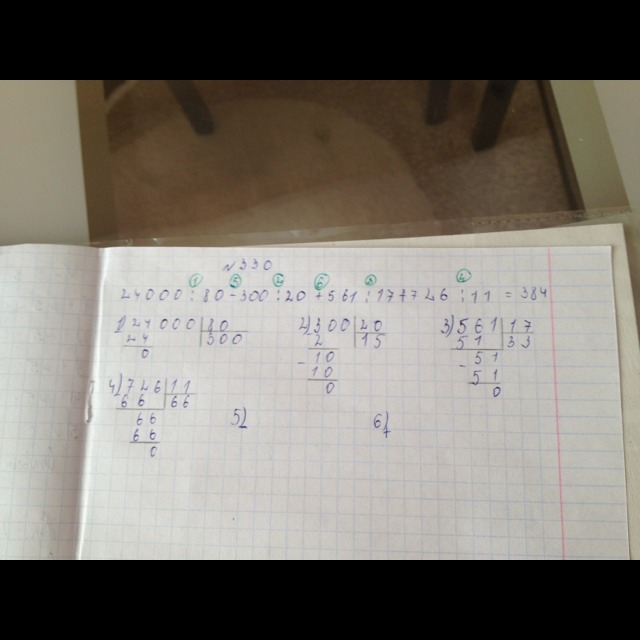 №330
① ⑤ ② ⑥ ③ ④
24000:80-300:20+561:17+726:11=384
1) 24000 80 2) 300 20 3) 561 17
24 300 2 15 51 33
0 -10 -51
10 51
0 0
4) 726 11
66 66 5) 6)
66
66
0